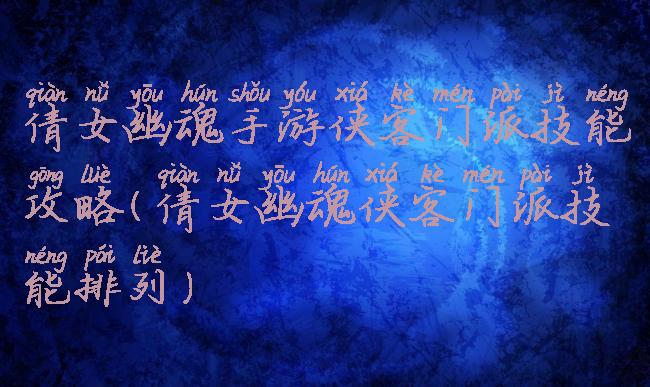 qiàn nǚ yōu hún shǒu yóu xiá kè mén pài jì néng
倩女幽魂手游侠客门派技能
gōng lüè qiàn nǚ yōu hún xiá kè mén pài jì
攻略(倩女幽魂侠客门派技
néng pái liè
能排列)